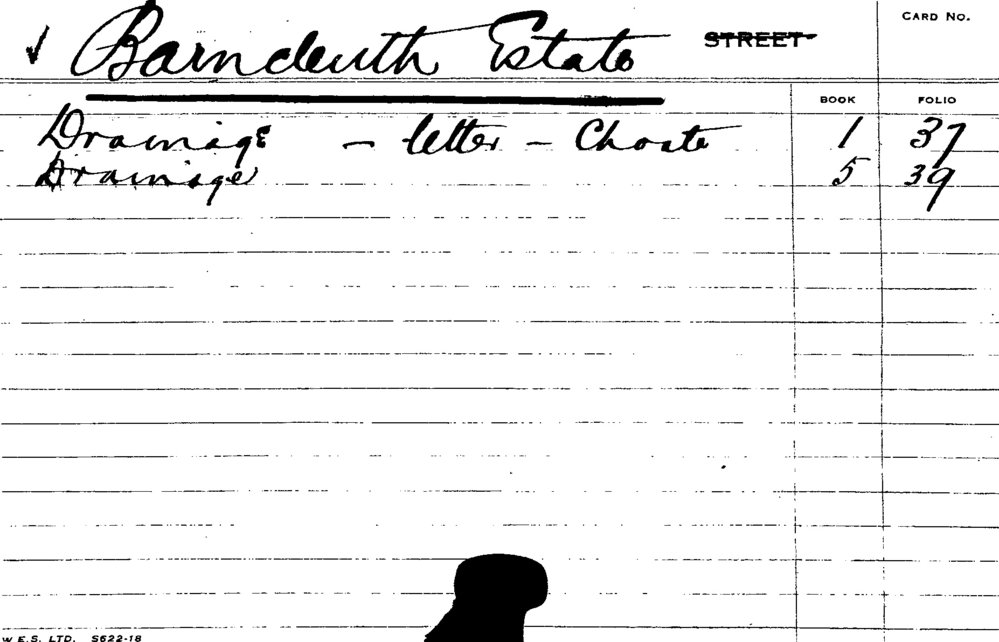 ✓ Barncleuth Estate STREET CARD NO.
BOOK FOLIO
Drainage - letter - Choate 1 37
Drainage 5 39
W.E.S. LTD. S622-18